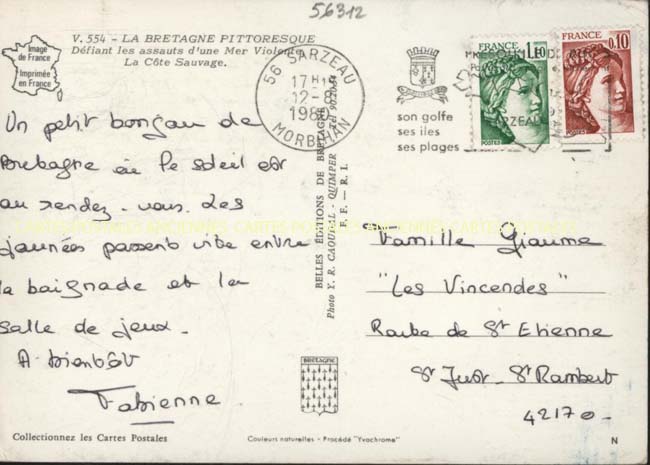 56312
V. 554 - LA BRETAGNE PITTORESQUE
Défiant les assauts d'une Mer Violente
La Côte Sauvage.
Image
de France
Imprimée
en France
56 SARZEAU
17H
12-9
1980
MORBIHAN
son golfe
ses iles
ses plages
FRANCE 1,10
POSTES
FRANCE 0,10
POSTES
Un petit bonjour de
Bretagne où le soleil est
au rendez-vous. Les
journées passent vite entre
la baignade et la
salle de jeux.
A bientôt
Fabienne
BELLES ÉDITIONS DE BRETAGNE
Photo Y. R. CAOUDAL - QUIMPER - Tel
F. F. - R. I.
CARTES POSTALES ANCIENNES CARTES POSTALES ANCIENNES CARTES POSTALES
Famille Giaume
"Les Vincendes"
Route de St Etienne
St Just - St Rambert
42170
BRETAGNE
Collectionnez les Cartes Postales
Couleurs naturelles - Procédé "Yvochrome"
N